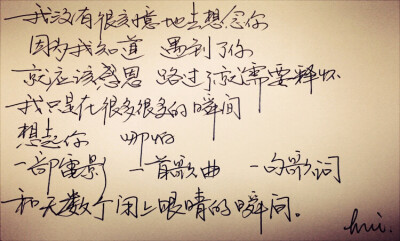 我没有很刻意地去想念你
因为我知道 遇到了你
就应该感恩 路过了就需要释怀
我只是在很多很多的瞬间
想起你 哪怕
一部电影 一首歌曲 一句歌词
和无数个闭上眼睛的瞬间。
hui.